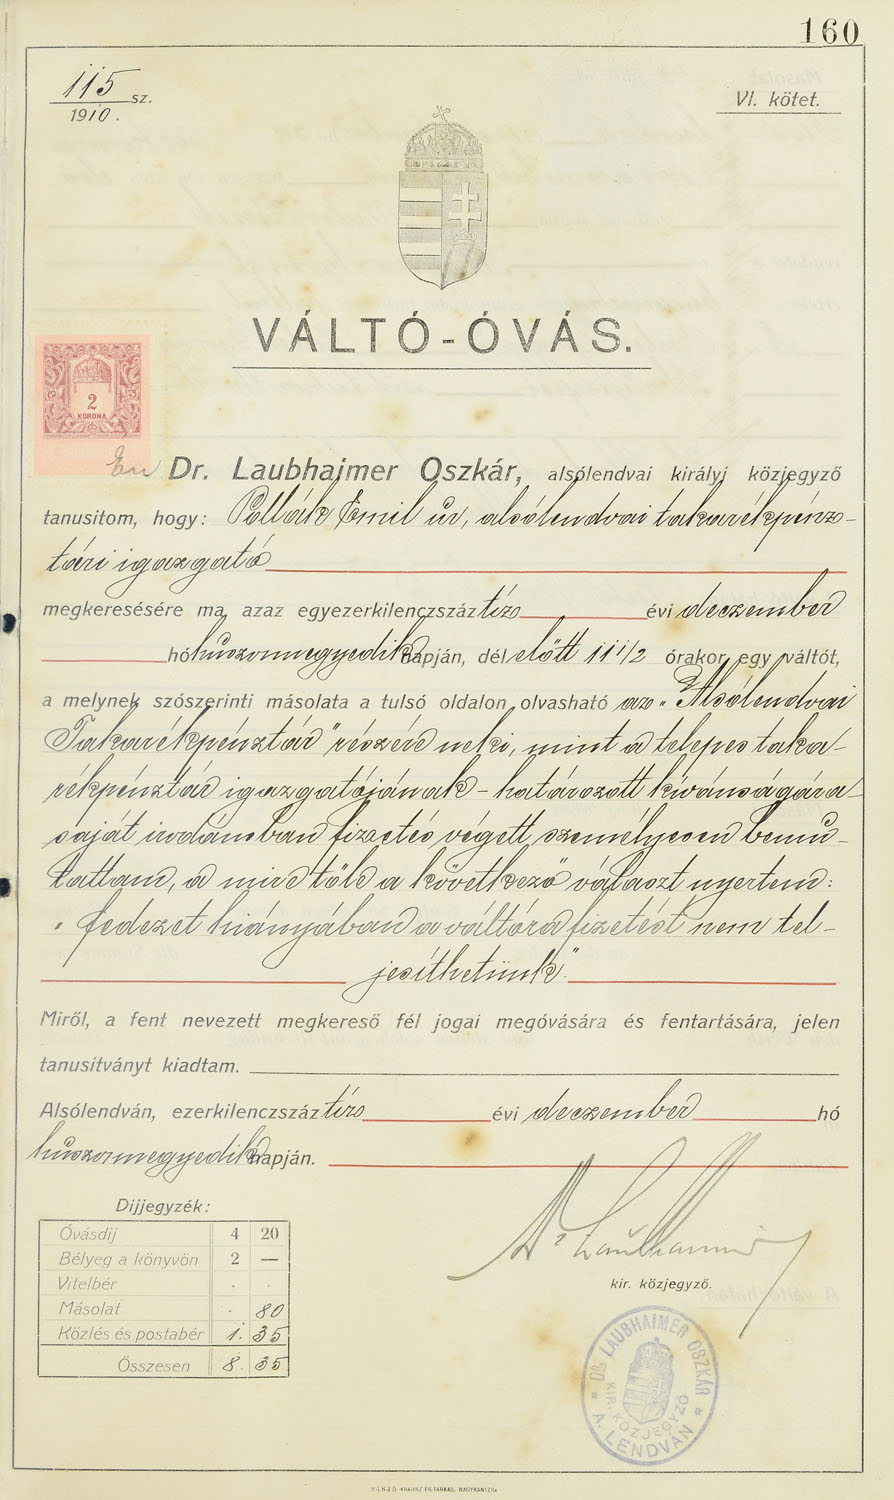 160
115 sz.
1910.
VI. kötet.
VÁLTÓ-ÓVÁS.
2
KORONA
Én Dr. Laubhajmer Oszkár, alsólendvai királyi közjegyző
tanusitom, hogy: Pollák Emil úr, alsólendvai takarékpénz-
tári igazgató
megkeresésére ma, azaz egyezerkilenczszáz tíz évi deczember
hó huszonnegyedik napján, dél előtt 11 1/2 órakor egy váltót,
a melynek szószerinti másolata a tulsó oldalon olvasható az „Alsólendvai
Takarékpénztár" részére neki, mint a telepes taka-
rékpénztár igazgatójának - határozott kívánságára -
saját irodámban fizetés végett személyesen bemu-
tattam, a mire tőle a következő választ nyertem:
„fedezet hiányában a váltóra fizetést nem tel-
jesíthetünk".
Miről, a fent nevezett megkereső fél jogai megóvására és fentartására, jelen
tanusitványt kiadtam.
Alsólendván, ezerkilenczszáz tíz évi deczember hó
huszonnegyedik napján.
Dijjegyzék:
Óvásdij 4 20
Bélyeg a könyvön 2 —
Vitelbér . .
Másolat . 80
Közlés és postabér 1. 35
Összesen 8. 35
kir. közjegyző.
* DR. LAUBHAIMER OSZKÁR *
KIR. KÖZJEGYZŐ
A. LENDVÁN
24845 KRAUSZ ÉS FARKAS, NAGYKANIZSA